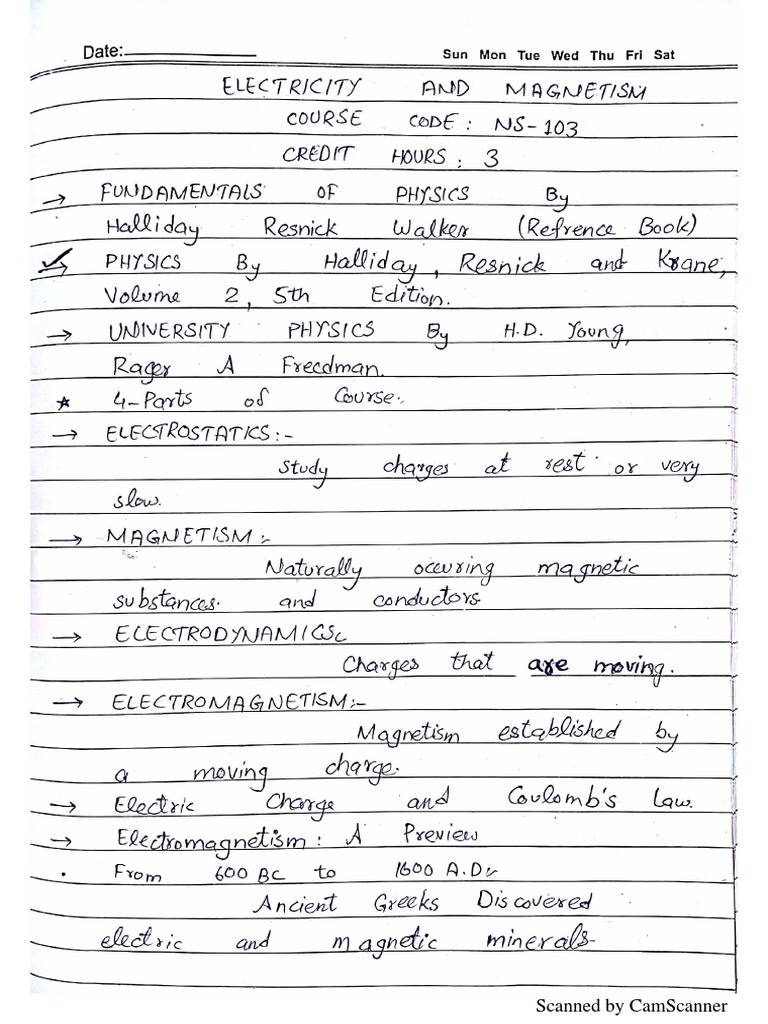 Date:
Sun Mon Tue Wed Thu Fri Sat
ELECTRICITY AND MAGNETISM
COURSE CODE: NS-103
CREDIT HOURS: 3
→ FUNDAMENTALS OF PHYSICS By
Halliday Resnick Walker (Refrence Book)
PHYSICS By Halliday, Resnick and Krane,
Volume 2, 5th Edition.
→ UNIVERSITY PHYSICS By H.D. Young,
Rager A Freedman.
* 4-Parts of Course:-
→ ELECTROSTATICS:-
Study charges at rest or very
slow.
→ MAGNETISM:-
Naturally occuring magnetic
substances. and conductors
→ ELECTRODYNAMICS:-
Charges that are moving.
→ ELECTROMAGNETISM:-
Magnetism established by
a moving charge.
→ Electric Charge and Coulomb's Law.
→ Electromagnetism: A Preview
• From 600 BC to 1600 A.D:-
Ancient Greeks Discovered
electric and magnetic minerals-
Scanned by CamScanner